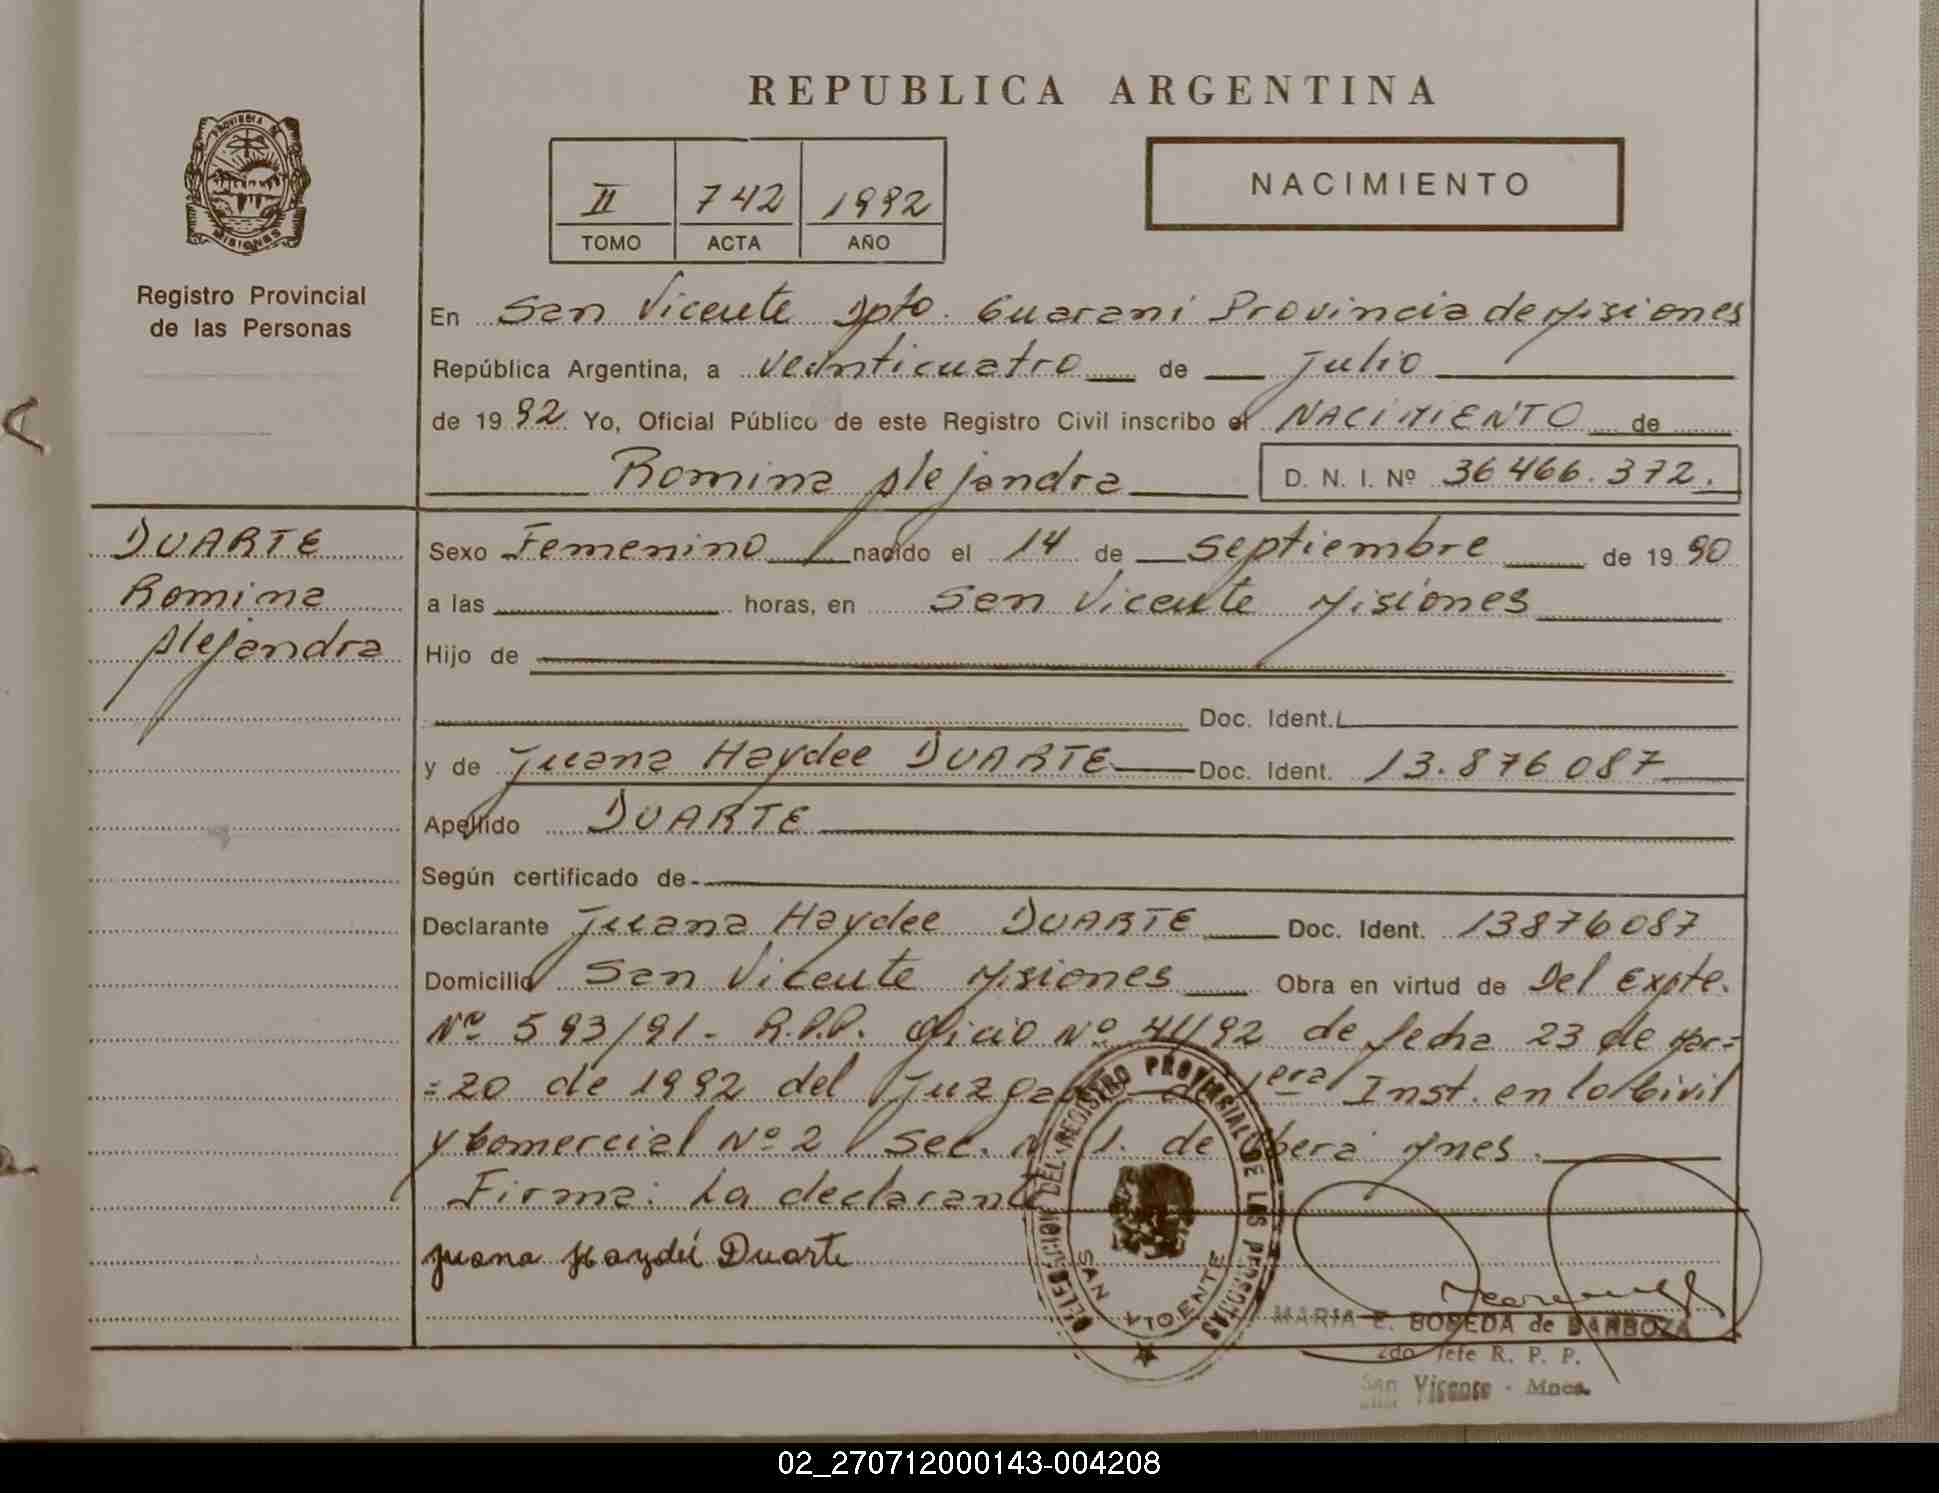 REPUBLICA ARGENTINA
PROVINCIA DE
MISIONES
Registro Provincial
de las Personas
II 742 1992
TOMO ACTA AÑO
NACIMIENTO
En San Vicente Dpto. Guarani Provincia de Misiones
República Argentina, a veinticuatro de Julio
de 1992 Yo, Oficial Público de este Registro Civil inscribo el NACIMIENTO de
Romina Alejandra D. N. I. Nº 36466.372.
DUARTE
Romina
Alejandra
Sexo Femenino nacido el 14 de septiembre de 1990
a las horas, en San Vicente Misiones
Hijo de
Doc. Ident.
y de Juana Haydee DUARTE Doc. Ident. 13.876087
Apellido DUARTE
Según certificado de
Declarante Juana Haydee DUARTE Doc. Ident. 13876087
Domicilio San Vicente Misiones Obra en virtud de Del Expte.
Nº 593/91- R.P.P. Oficio Nº 41/92 de fecha 23 de Mar=
=zo de 1992 del 1era Inst. en lo Civil
y Comercial Nº 2 Sec. 1. de Mnes.
Firma: La declarante
Juana Haydeé Duarte
DELEGACION DEL REGISTRO PROVINCIAL DE LAS PERSONAS
SAN VICENTE
MARIA E. BOBEDA de BARBOZA
2do Jefe R. P. P.
San Vicente - Mnes.
02_270712000143-004208